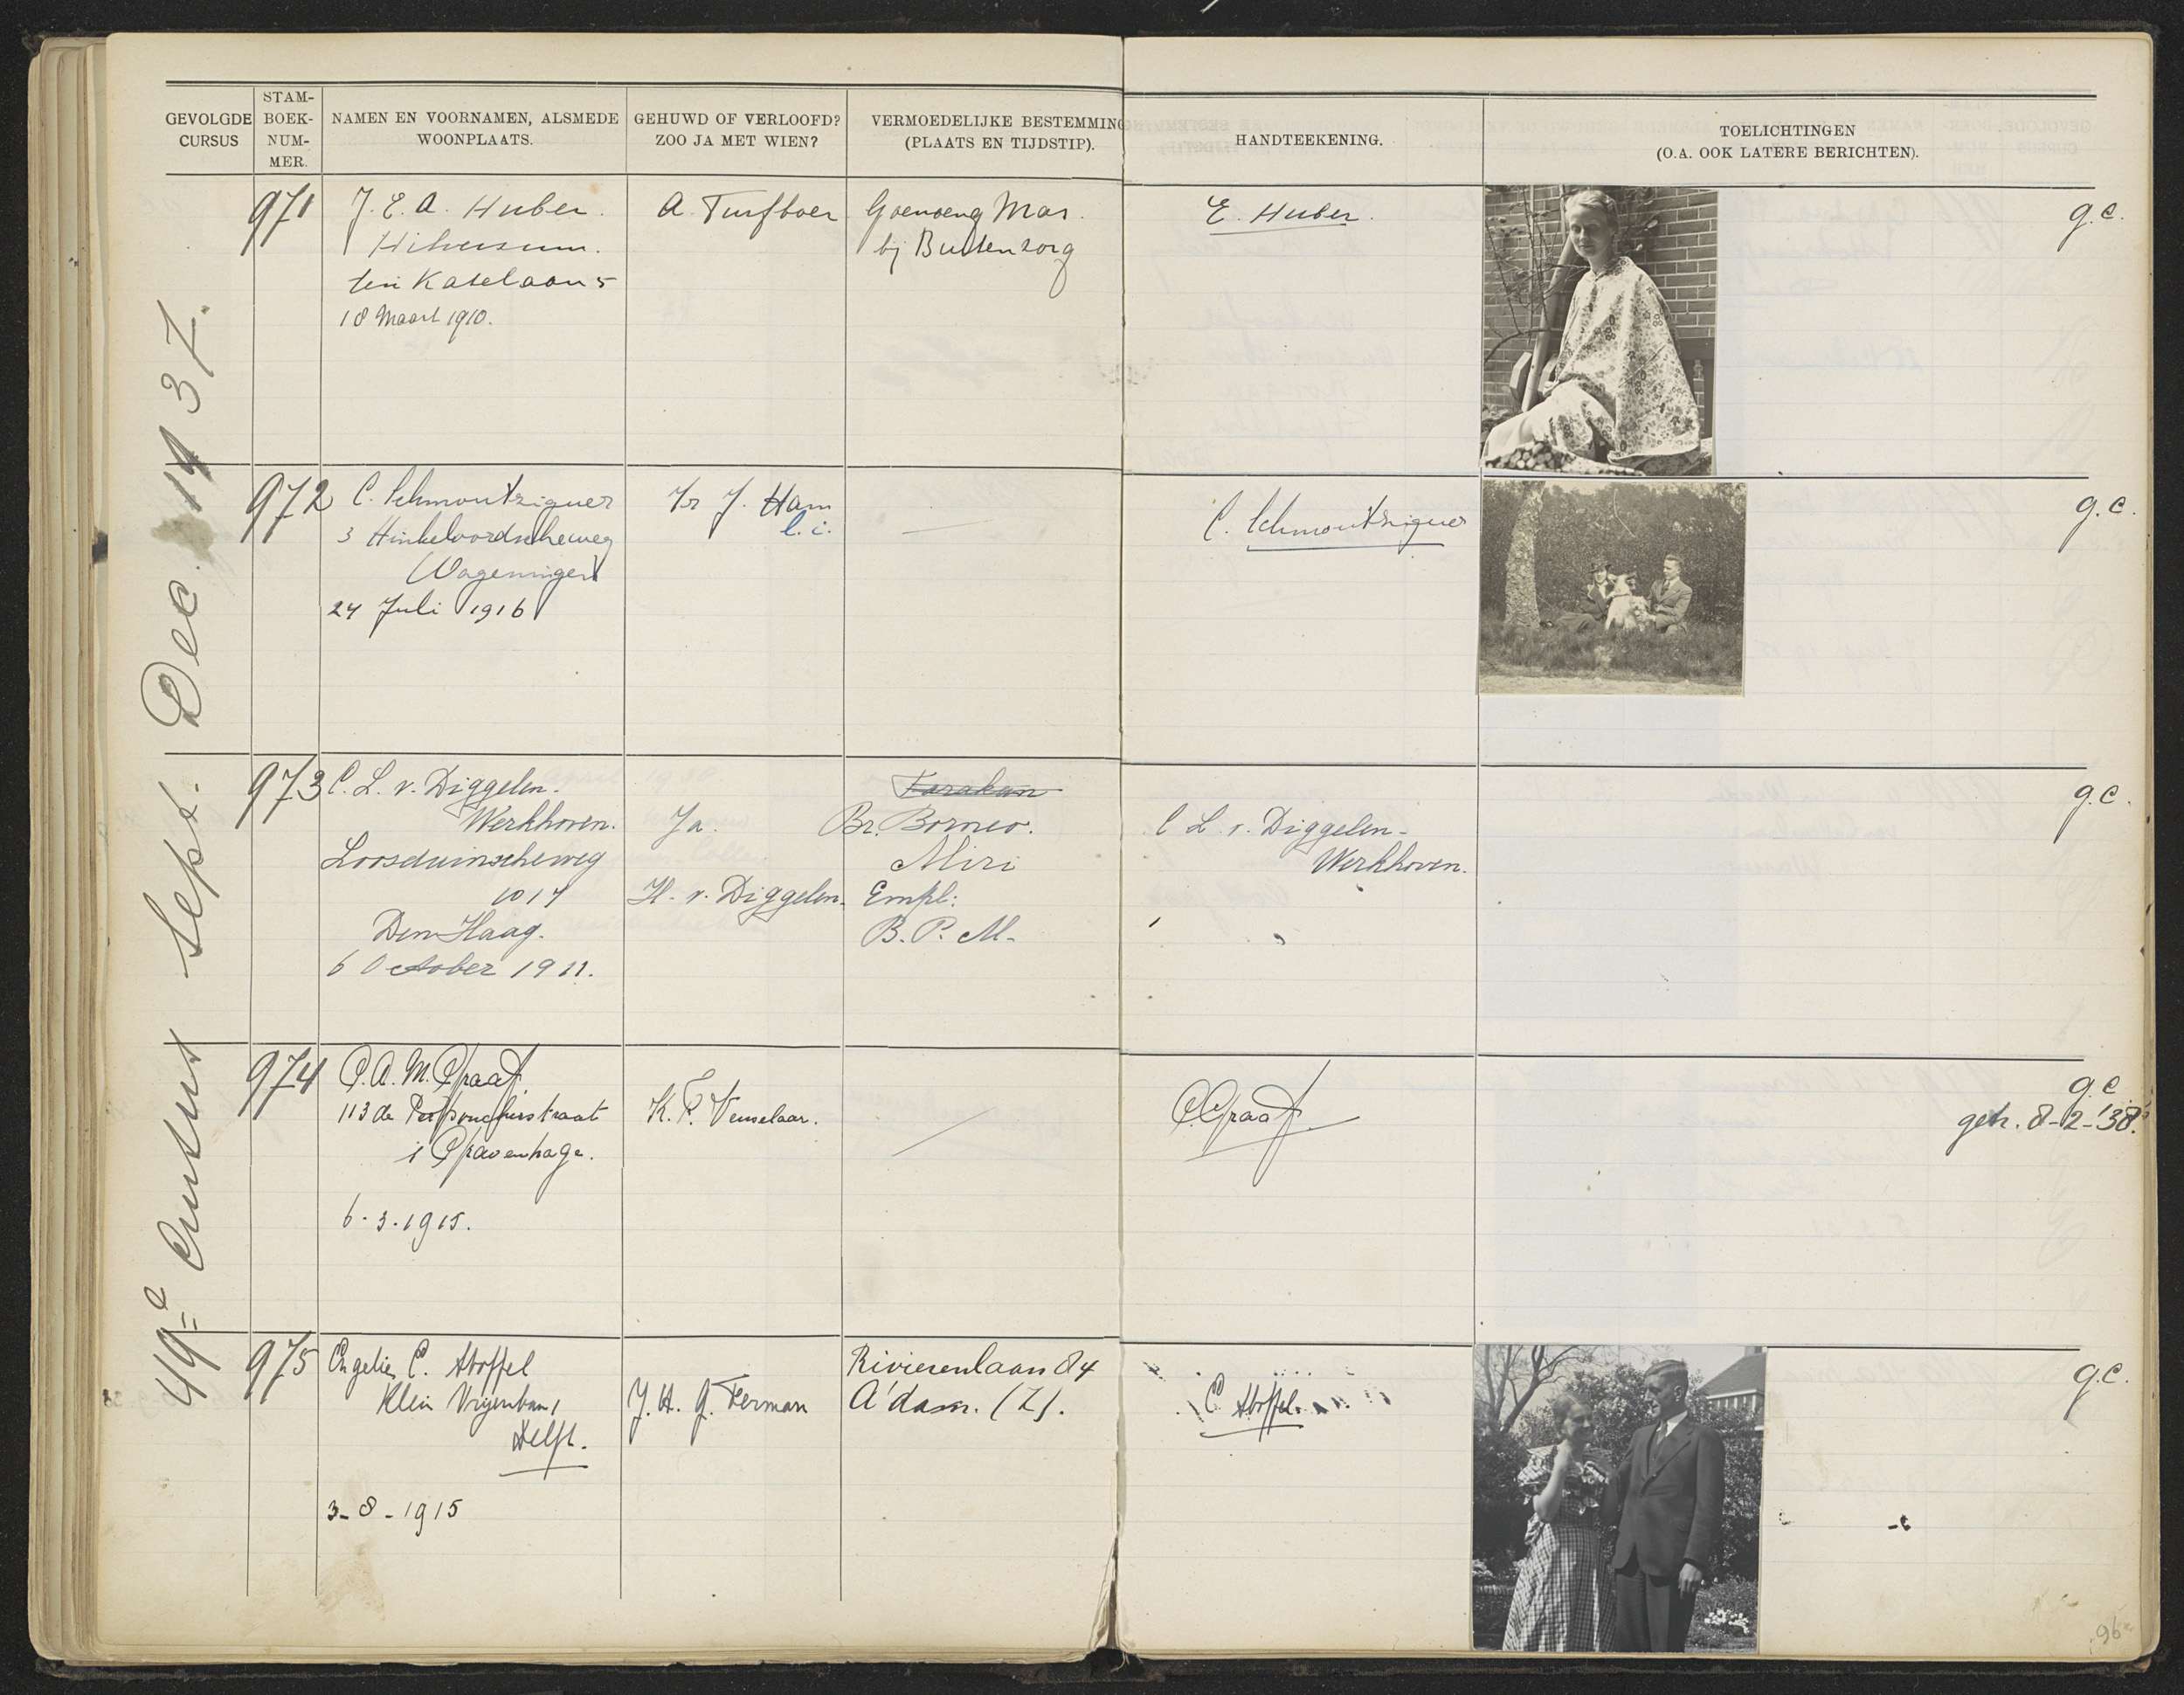 GEVOLGDE CURSUS
STAM-BOEK-NUM-MER.
NAMEN EN VOORNAMEN, ALSMEDE WOONPLAATS.
GEHUWD OF VERLOOFD? ZOO JA MET WIEN?
VERMOEDELIJKE BESTEMMING (PLAATS EN TIJDSTIP).
HANDTEEKENING.
TOELICHTINGEN
(O.A. OOK LATERE BERICHTEN).
49e Cursus Sept. Dec. 1937.
971
J. E. A. Huber.
Hilversum.
ten Katelaan 5
18 Maart 1910.
A. Turfboer
Goenoeng Mas.
bij Buitenzorg
E. Huber.
g.c.
972
C. Schmoutziguer
3 Hinkeloordscheweg
Wageningen
24 Juli 1916
Ir J. Ham
l.i.
C. Schmoutziguer
g.c.
973
C. L. v. Diggelen-
Werkhoven.
Loosduinscheweg
1017
Den Haag.
6 October 1911.
Ja.
H. v. Diggelen.
Tarakan
Br. Borneo.
Miri
Empl:
B. P. M.
C L. v. Diggelen-
Werkhoven.
g.c.
974
C. A. M. Graaf.
113 de Perponcherstraat
's Gravenhage.
6-3-1915.
K. F. Venselaar.
C. Graaf.
g.c.
geh. 8-2-'38.
975
C. Stoffel
Klein Vrijenban,
Delft.
3-8-1915
J. H. G. Ferman
Rivierenlaan 84
A'dam. (Z).
C Stoffel.
g.c.
96